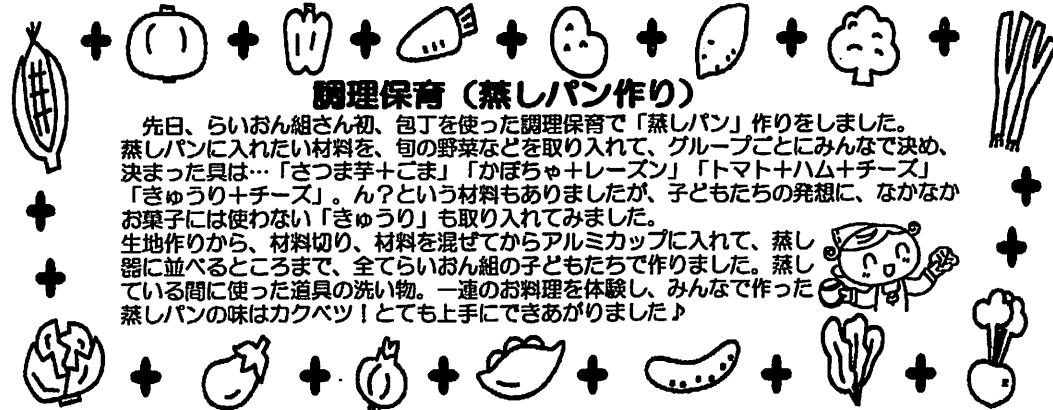 調理保育(蒸しパン作り)
先日、らいおん組さん初、包丁を使った調理保育で「蒸しパン」作りをしました。
蒸しパンに入れたい材料を、旬の野菜などを取り入れて、グループごとにみんなで決め、
決まった具は…「さつま芋+ごま」「かぼちゃ+レーズン」「トマト+ハム+チーズ」
「きゅうり+チーズ」。ん?という材料もありましたが、子どもたちの発想に、なかなか
お菓子には使わない「きゅうり」も取り入れてみました。
生地作りから、材料切り、材料を混ぜてからアルミカップに入れて、蒸し
器に並べるところまで、全てらいおん組の子どもたちで作りました。蒸し
ている間に使った道具の洗い物。一連のお料理を体験し、みんなで作った
蒸しパンの味はカクベツ!とても上手にできあがりました♪